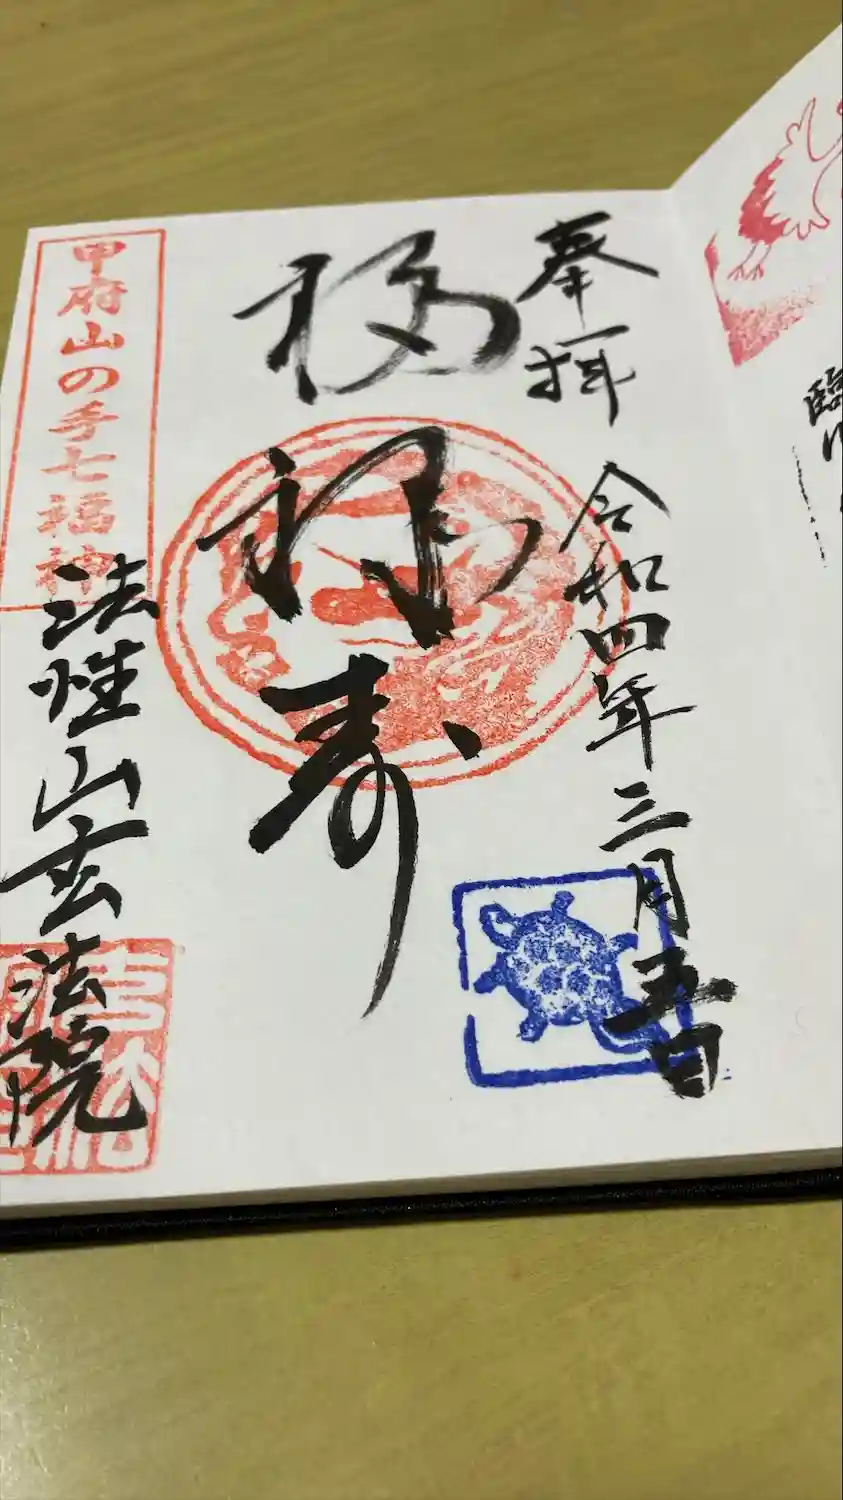 臨
奉拝
令和四年三月五日
福禄寿
甲府山の手七福神
法性山玄法院